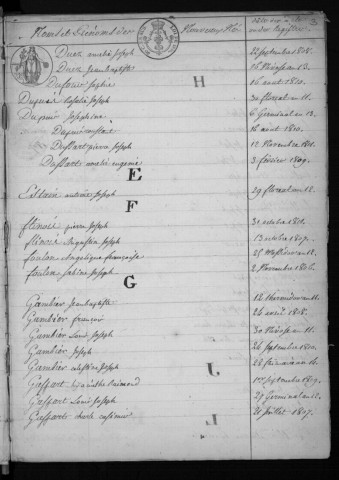 Noms et Prénoms des Nouveaux Nés
3
Duez amélie Joseph 22 septembre 1808.
Duez Jean baptiste
Dufour Sophie 16 aout 1810.
H
Dupuis Rosalie Joseph 30 floreal an 11.
Dupuié Joséphine 6 Germinal an 13.
Dupuié constant 16 aout 1810.
Dussart pierre Joseph 12 Novembre 1810.
Dussart rosalie eugenie 3 fevrier 1809.
E
Estain antoine Joseph 29 floreal an 12.
F
flinois pierre Joseph 31 octobre 1810.
flinois Augustin Joseph 13 octobre 1807.
foulon angelique françoise 25 Messidor an 11.
foulon Sabine Joseph 2 Novembre 1806.
G
Gambier Jean baptiste 12 thermidor an 11.
Gambier françois 26 aout 1808.
Gambier Louis Joseph 30 Nivose an 11.
Gambier Joseph 26 septembre 1810.
Gambier celestine Joseph
U
Gassart hyacinthe Raimond 1er septembre 1809.
Gassart Louis Joseph 29 Germinal an 12.
Gassart charles casimir 21 juillet 1807.
J